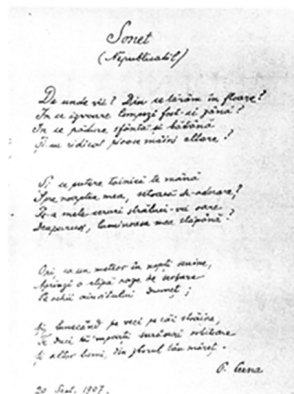 Sonet
(Nepublicat)
De unde vii? Din ce tărâm în floare?
În ce izvoare limpezi fost-ai zână?
În ce pădure sfântă și bătrână
Ți-au ridicat pioase mâini altare?
Și ce putere tainică te mână
Spre noaptea mea, setoasă de-adorare,
Să-a mele
Deapururi, luminoasa mea stăpână?
Ori, ca un meteor în nopți senine,
Aprinzi o clipă raze de
Pe ochii
Și lunecând pe veci pe căi străine,
Te duci să-mparți
Și altor lumi, din zborul tău măreț.
P. Cerna
20 Sept. 1907.